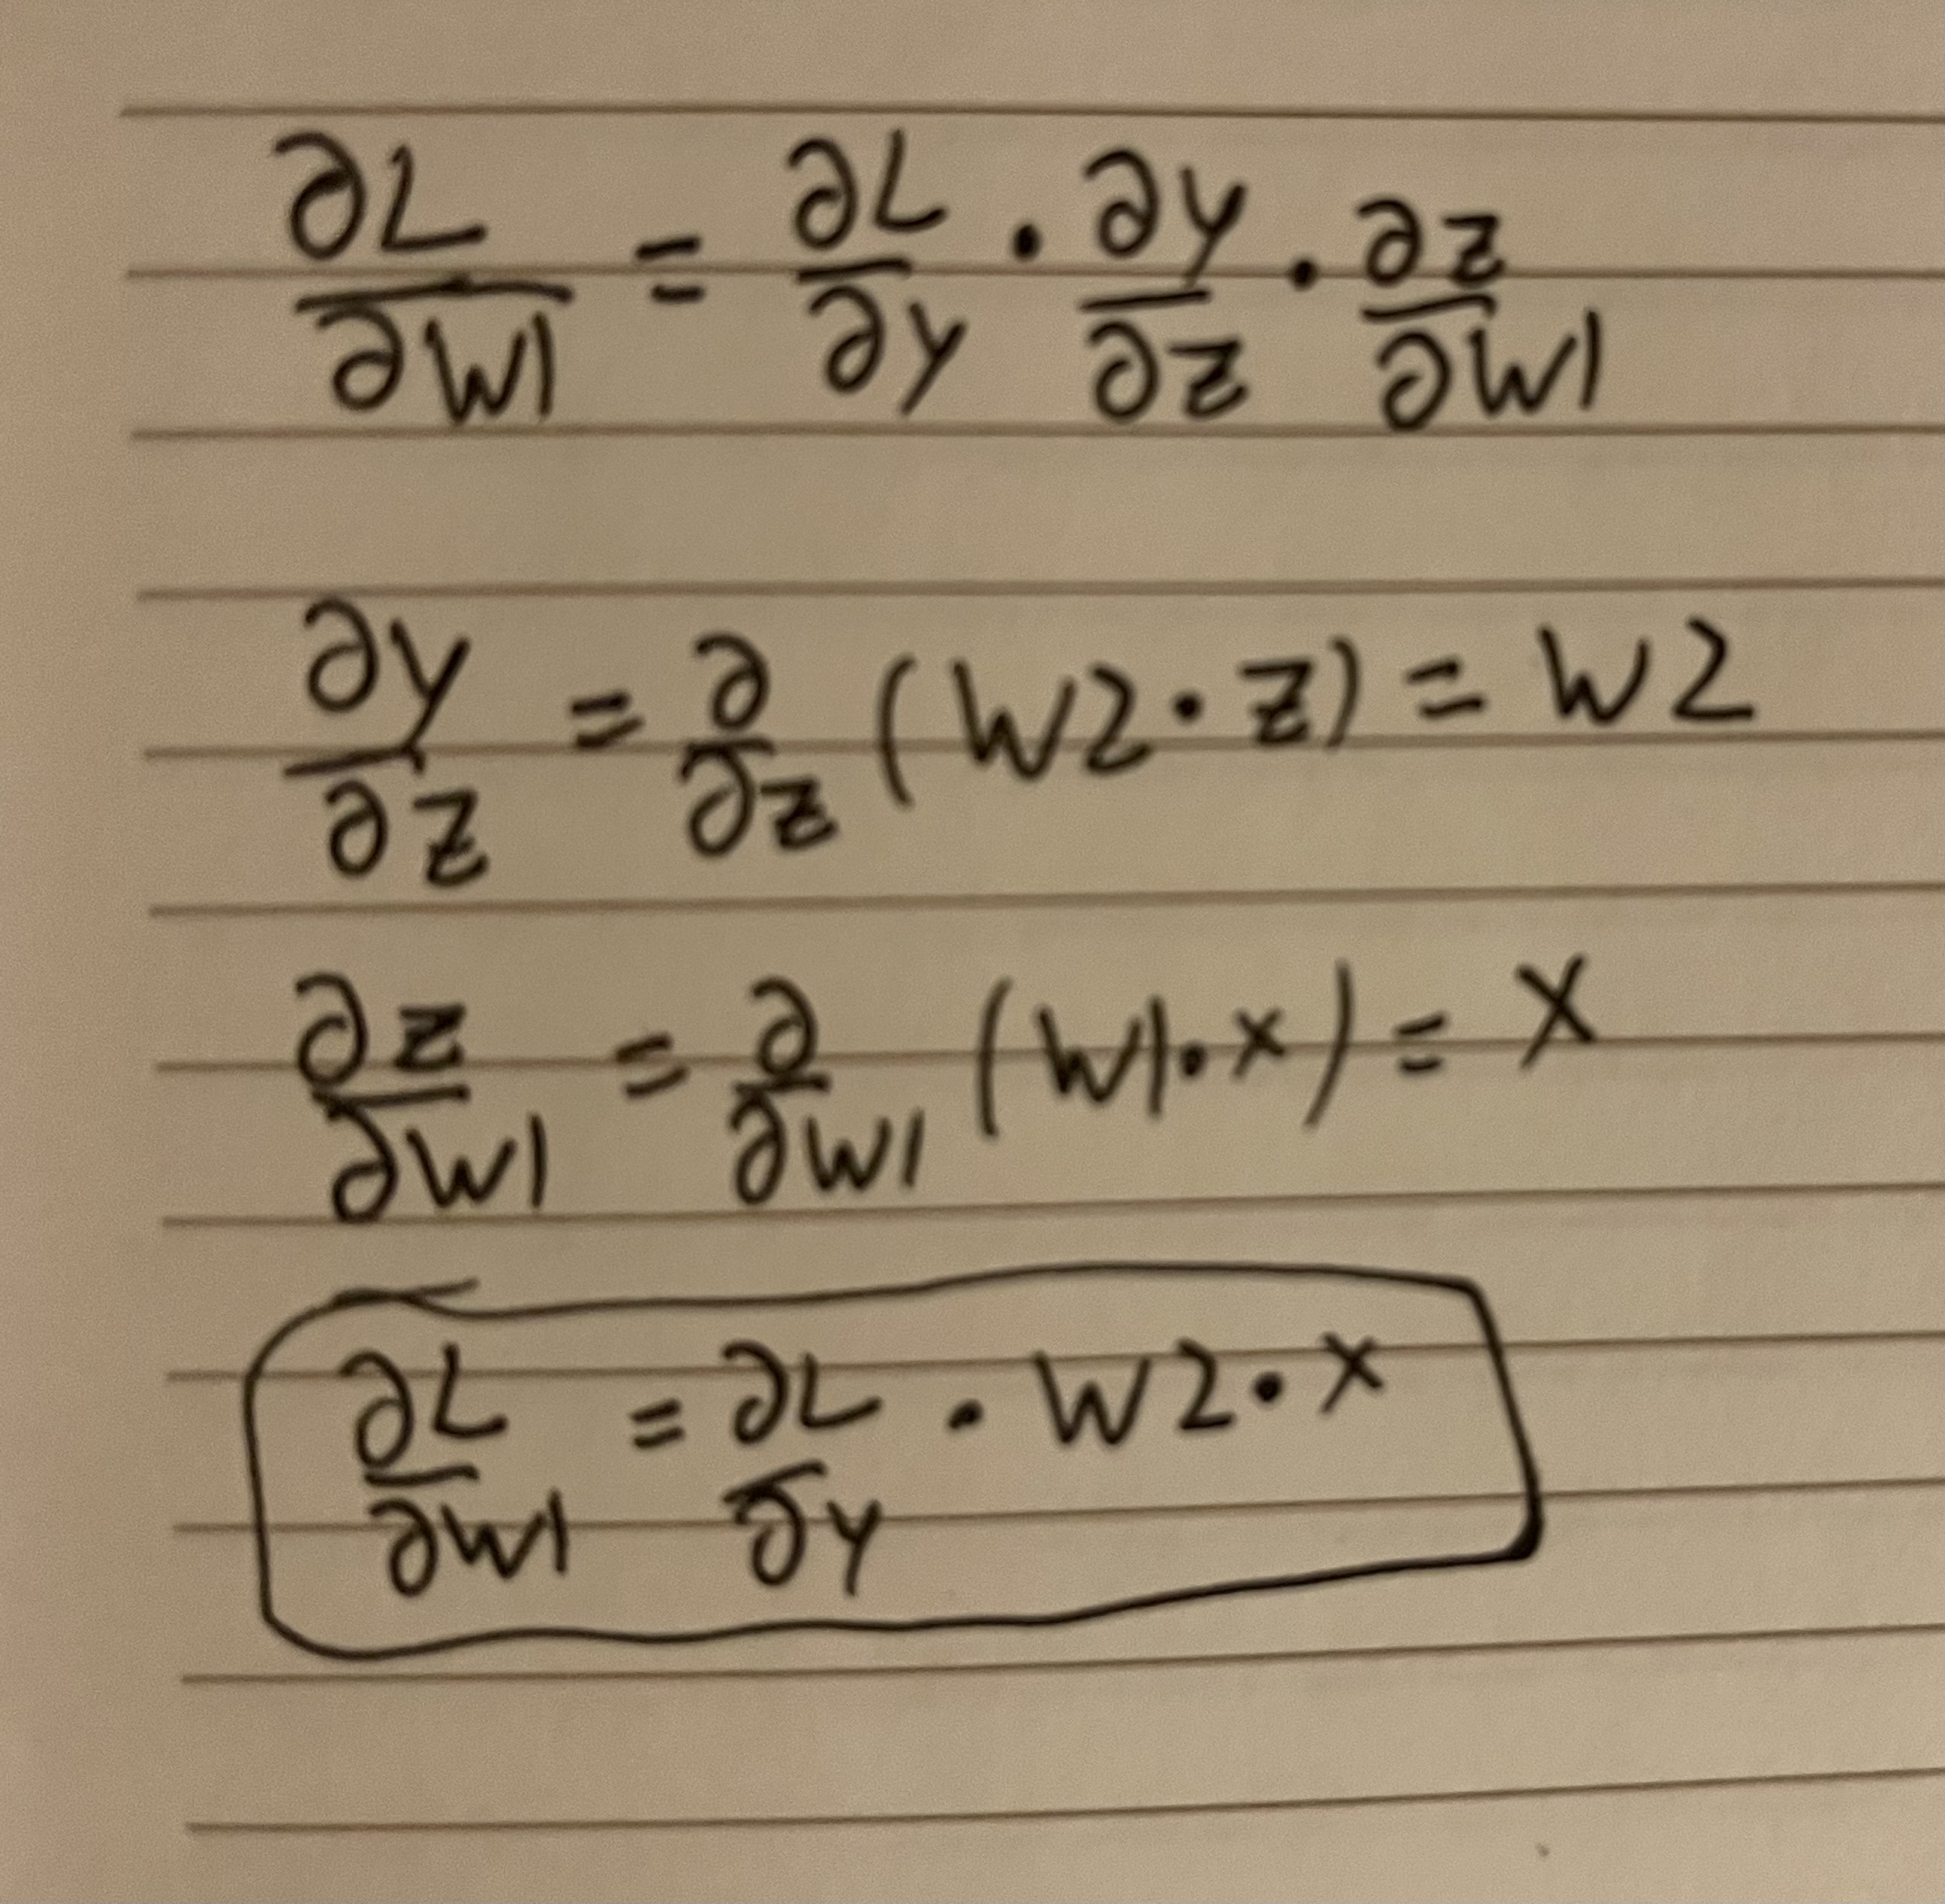 ∂L/∂W1 = ∂L/∂y · ∂y/∂z · ∂z/∂W1
∂y/∂z = ∂/∂z (W2 · z) = W2
∂z/∂W1 = ∂/∂W1 (W1 · x) = x
∂L/∂W1 = ∂L/∂y · W2 · x